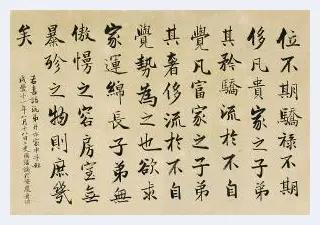 位不期驕祿不期
侈凡貴家之子弟
其矜驕流於不自
覺凡富家之子弟
其奢侈流於不自
覺勢為之也欲求
家運綿長子弟無
傲慢之容房室無
暴殄之物則庶幾
矣
弟并示家中子姪
咸豐十一年八月十八日